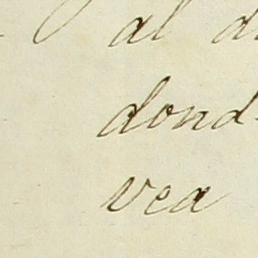 al
dond
vea